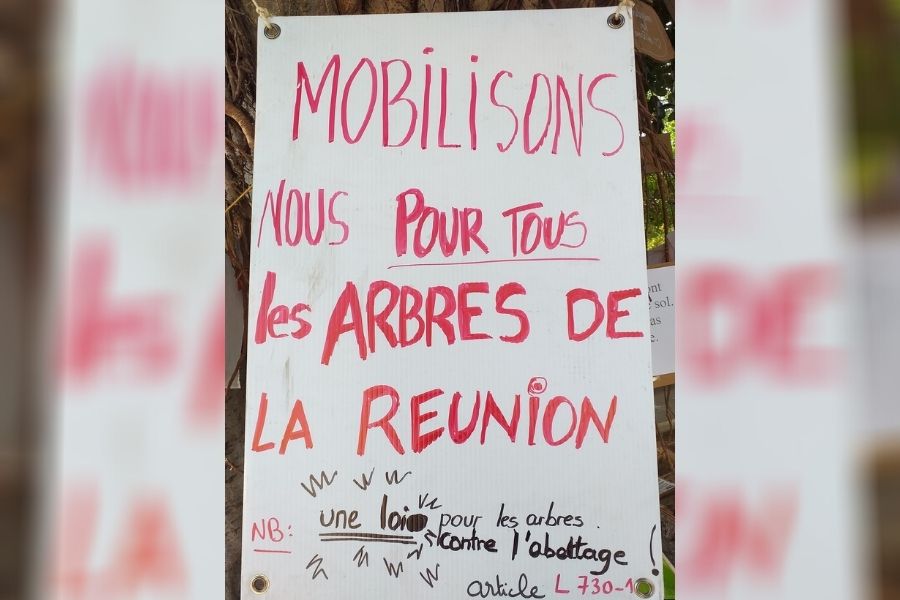 MOBILISONS
NOUS POUR TOUS
les ARBRES DE
LA REUNION
NB: une loi pour les arbres.
contre l'abattage !
article L 730-1
ont
sol.
as
e.